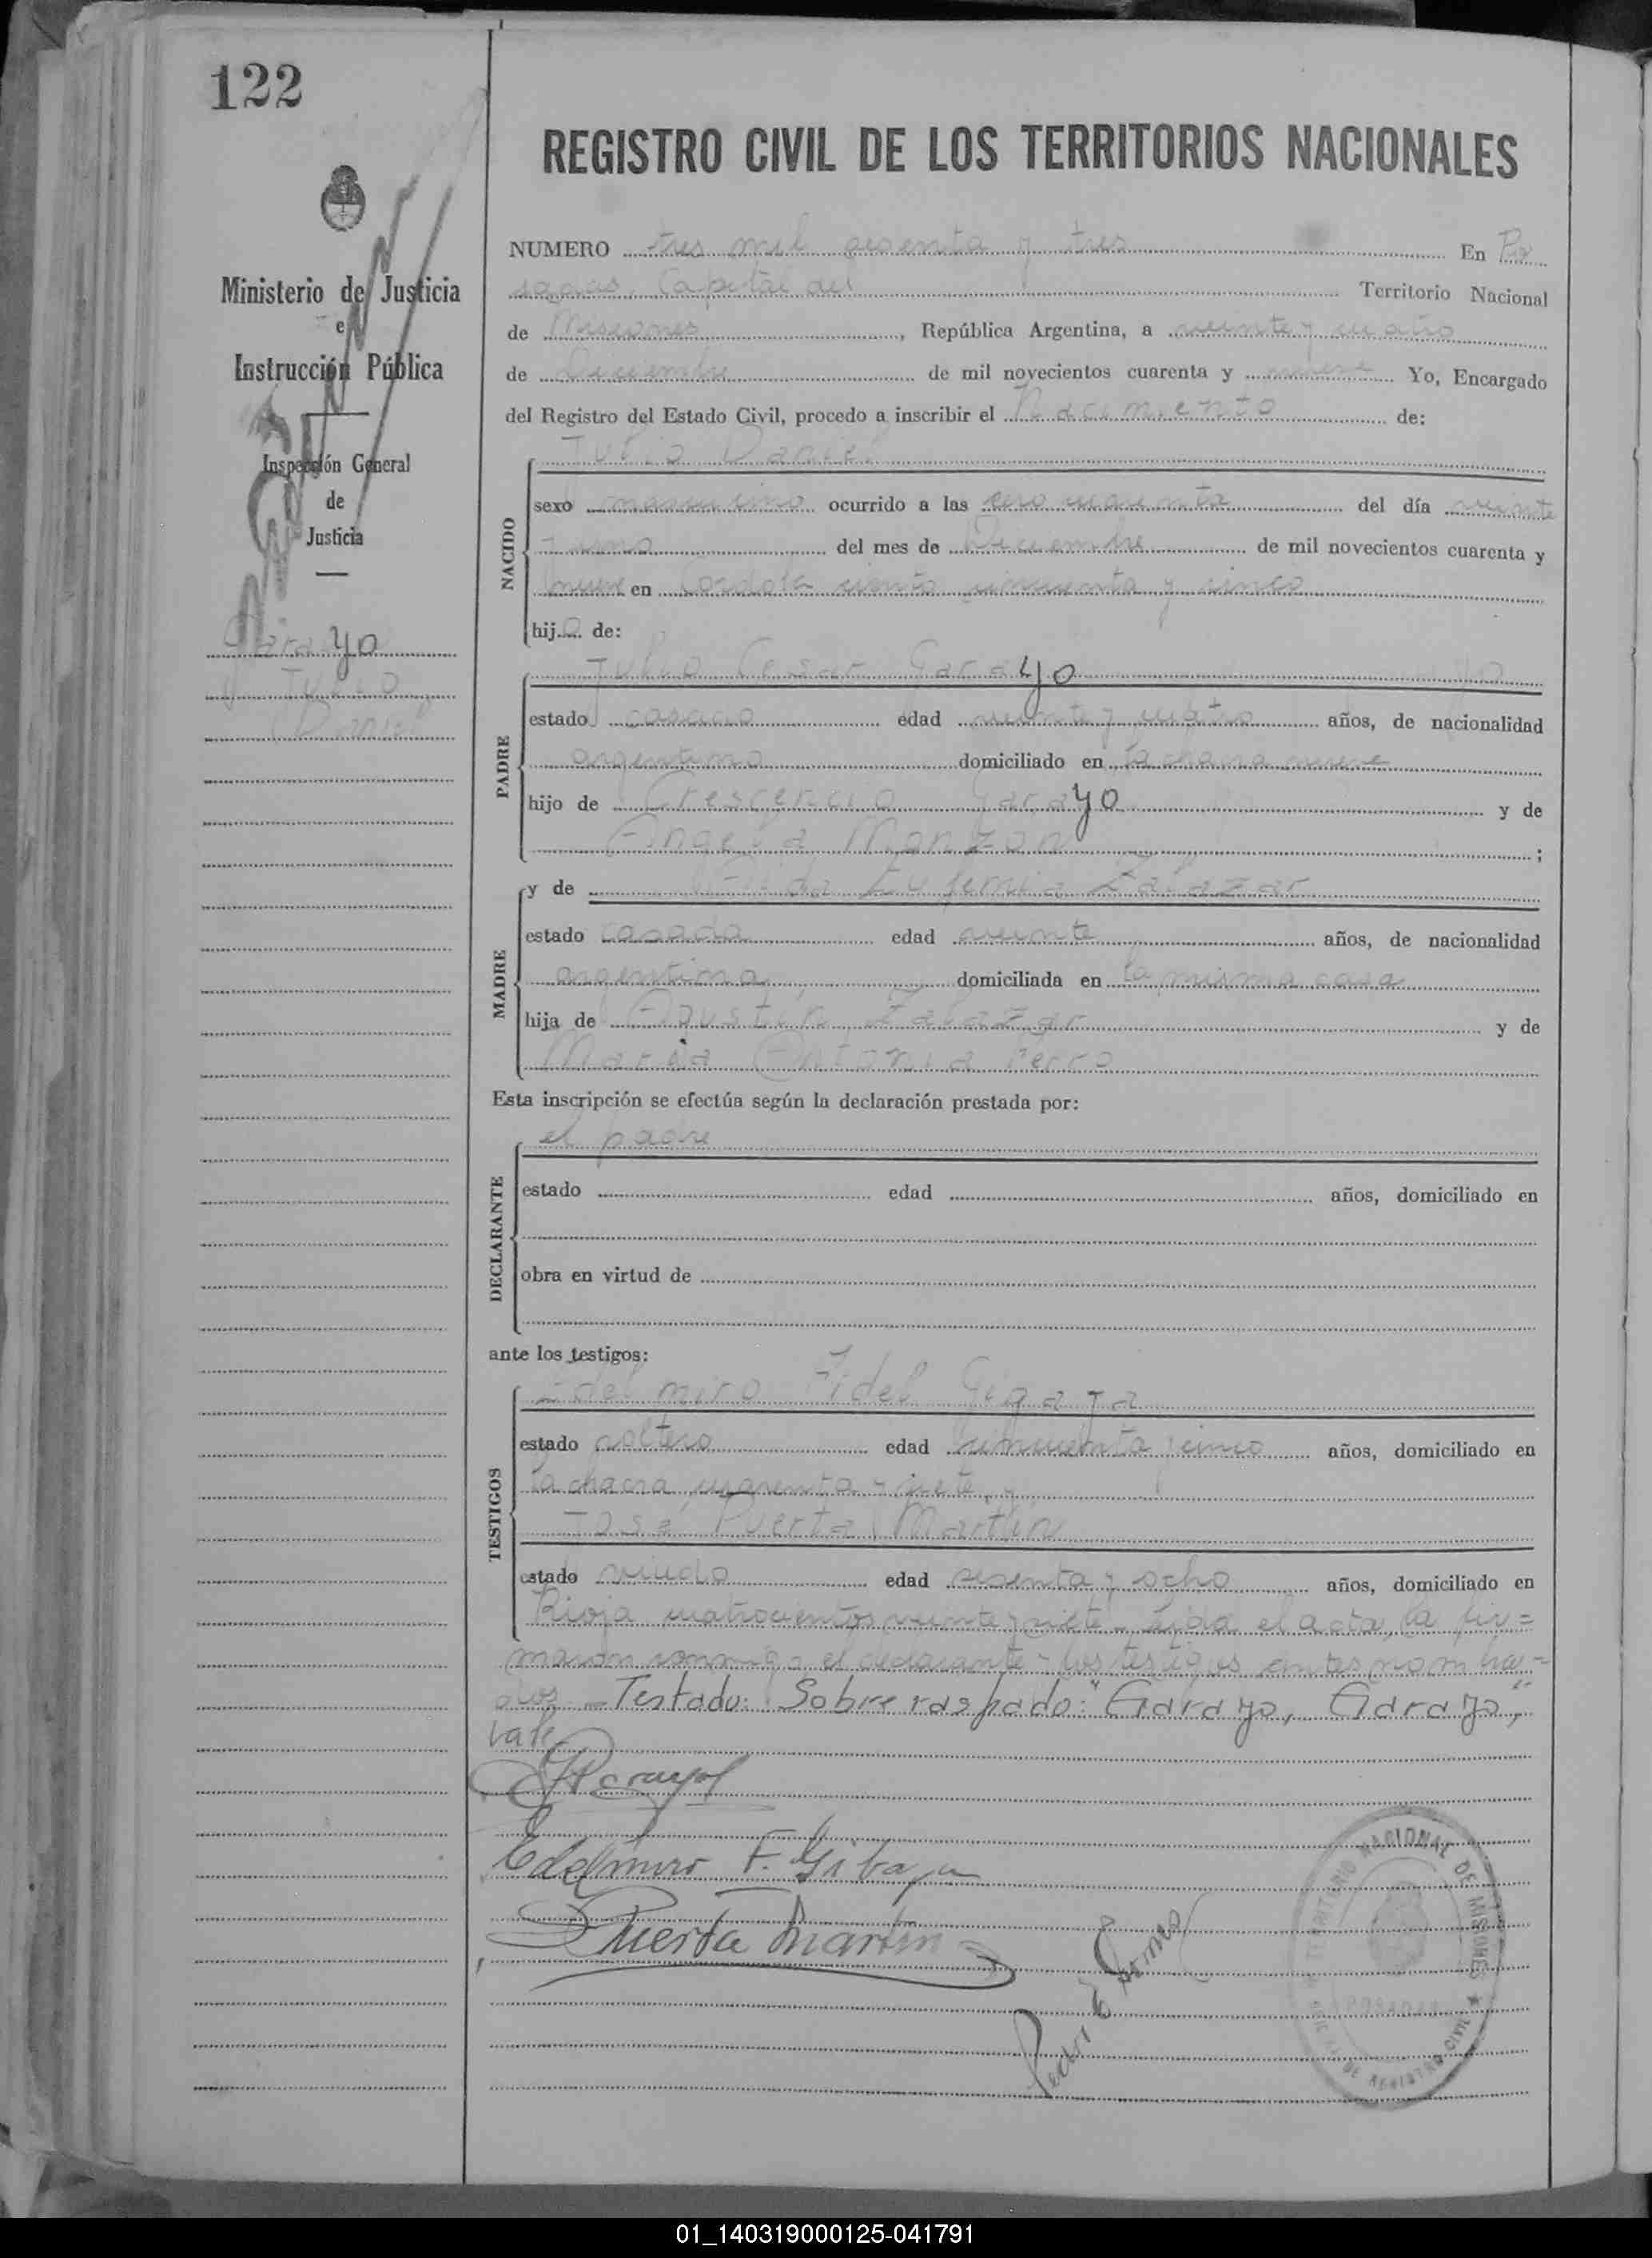 122
REGISTRO CIVIL DE LOS TERRITORIOS NACIONALES
Ministerio de Justicia
e
Instrucción Pública
Inspección General
de
Justicia
Garayo
Julio
Daniel
NUMERO tres mil sesenta y tres En Po
sadas, Capital del Territorio Nacional
de Misiones, República Argentina, a veinte y cuatro
de Diciembre de mil novecientos cuarenta y nueve Yo, Encargado
del Registro del Estado Civil, procedo a inscribir el Nacimiento de:
NACIDO
Julio Daniel
sexo masculino ocurrido a las cero cuarenta del día veinte
y uno del mes de Diciembre de mil novecientos cuarenta y
nueve en Córdoba ciento cincuenta y cinco
hijo de:
PADRE
Julio Cesar Garayo
estado casado edad veinte y cuatro años, de nacionalidad
argentina domiciliado en la chacra nueve
hijo de Crescencio Garayo y de
Angela Monzon;
MADRE
y de Elida Eufemia Zalazar
estado casada edad veinte años, de nacionalidad
argentina domiciliada en la misma casa
hija de Agustín Zalazar y de
Maria Antonia Ferro
Esta inscripción se efectúa según la declaración prestada por:
DECLARANTE
el padre
estado edad años, domiciliado en
obra en virtud de
ante los testigos:
TESTIGOS
Edelmiro Fidel Gigaya
estado soltero edad cincuenta y cinco años, domiciliado en
la chacra cuarenta y siete, y
José Puerta Martín
estado viudo edad sesenta y ocho años, domiciliado en
Rioja cuatrocientos veinte y siete - Leída el acta, la fir=
maron conmigo el declarante y los testigos antes nombra=
dos - Testado: Sobre raspado: "Garayo, Garayo",
vale
Edelmiro F. Gibaja
Puerta Martin
TERRITORIO NACIONAL DE MISIONES
POSADAS
DE REGISTRO CIVIL
01_140319000125-041791